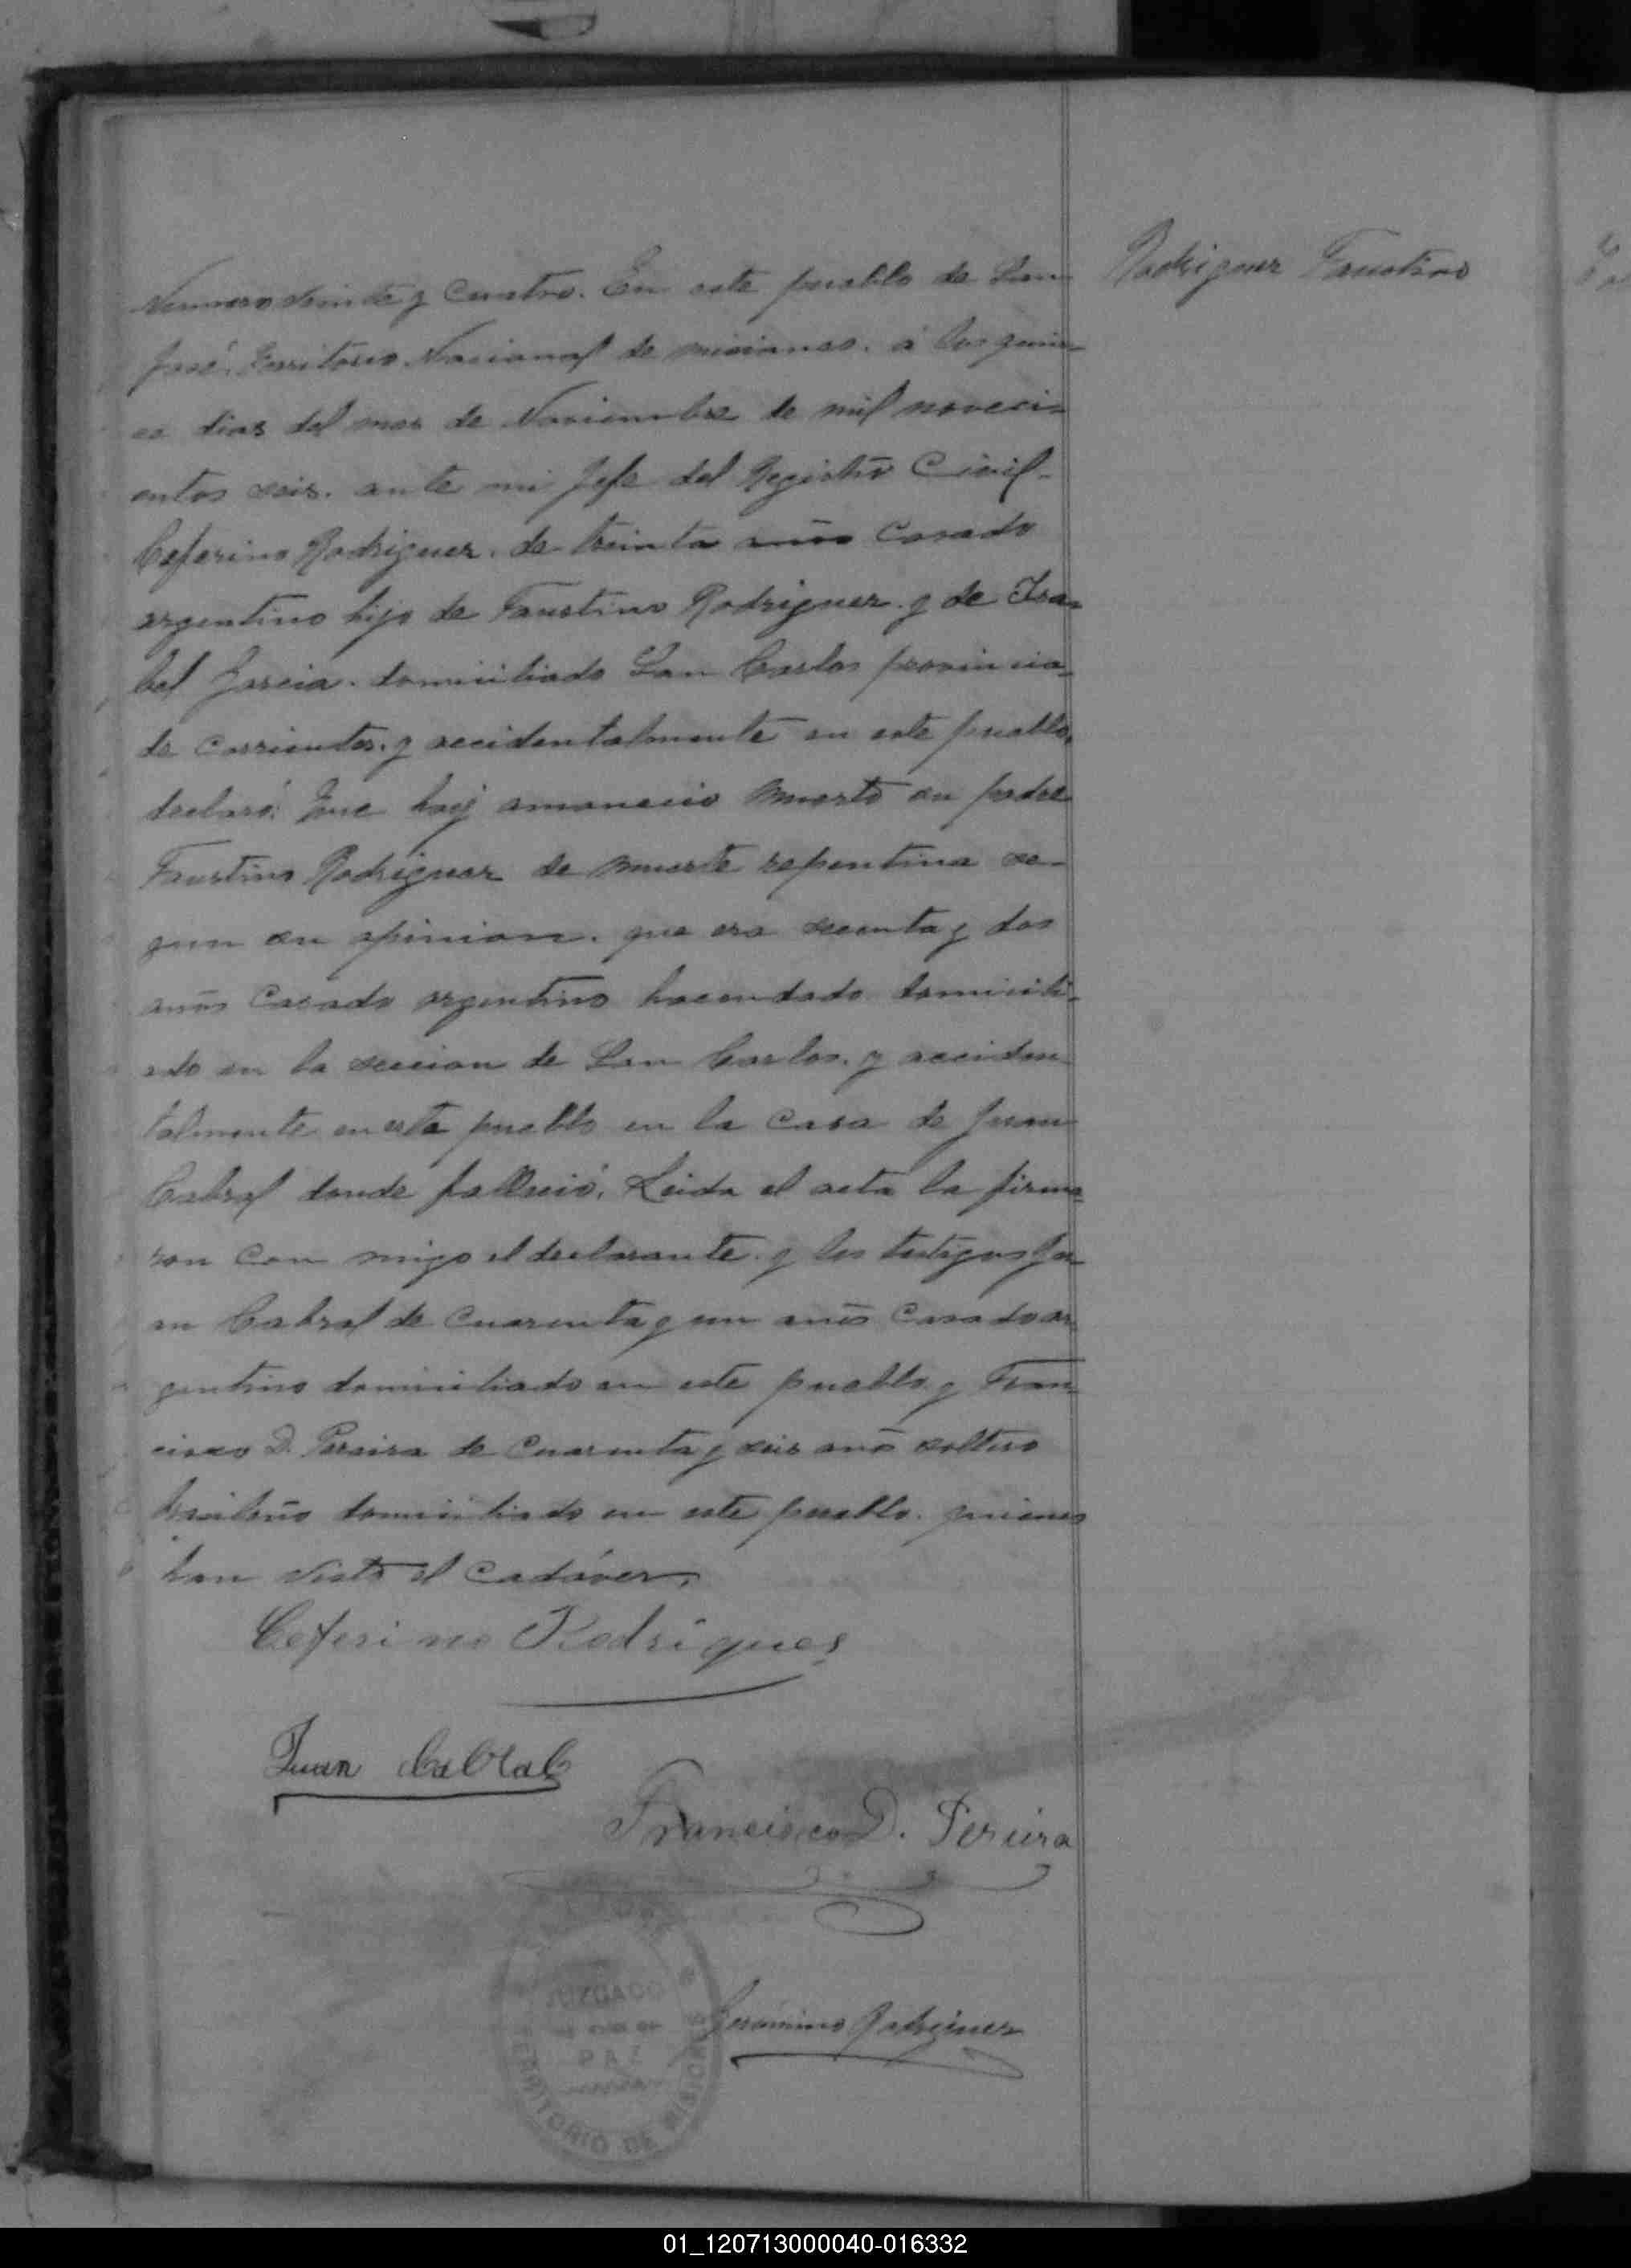 Numero veinte y cuatro. En este pueblo de San
Rodriguez Faustino
José, Territorio Nacional de misiones. á los quin-
ce dias del mes de Noviembre de mil noveci-
entos seis. ante mi Jefe del Registro Civil-
Ceferino Rodriguez. de treinta años Casado
argentino hijo de Faustino Rodriguez. y de Isa-
bel Garcia. domiciliado San Carlos provincia-
de Corrientes. y accidentalmente en este pueblo,
declaró: Que hoy amanecio muerto su padre
Faustino Rodriguez de muerte repentina se-
gun su opinion. que era sesenta y dos
años Casado argentino hacendado domicili-
ado en la seccion de San Carlos. y acciden
talmente en este pueblo en la casa de Juan
Cabral donde falleció. Leida el acta la firma-
ron con migo el declarante. y los testigos Ju-
an Cabral de Cuarenta y un años Casado ar
gentino domiciliado en este pueblo. y Fran-
cisco D. Pereira de Cuarenta y seis años soltero
brasileño domiciliado en este pueblo. quienes
han visto el Cadáver.
Ceferino Rodrigues
Juan Cabral
Francisco D. Pereira
JUZGADO
Gerónimo Rodriguez
PAZ
TERRITORIO DE MISIONES
01_120713000040-016332